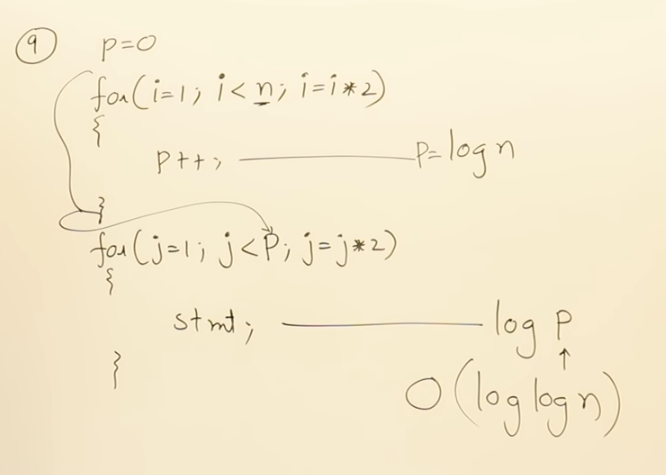 9 p=0
for(i=1; i<n; i=i*2)
{
p++; p=log n
}
for(j=1; j<P; j=j*2)
{
stmt; log P
↑
}
O(log log n)